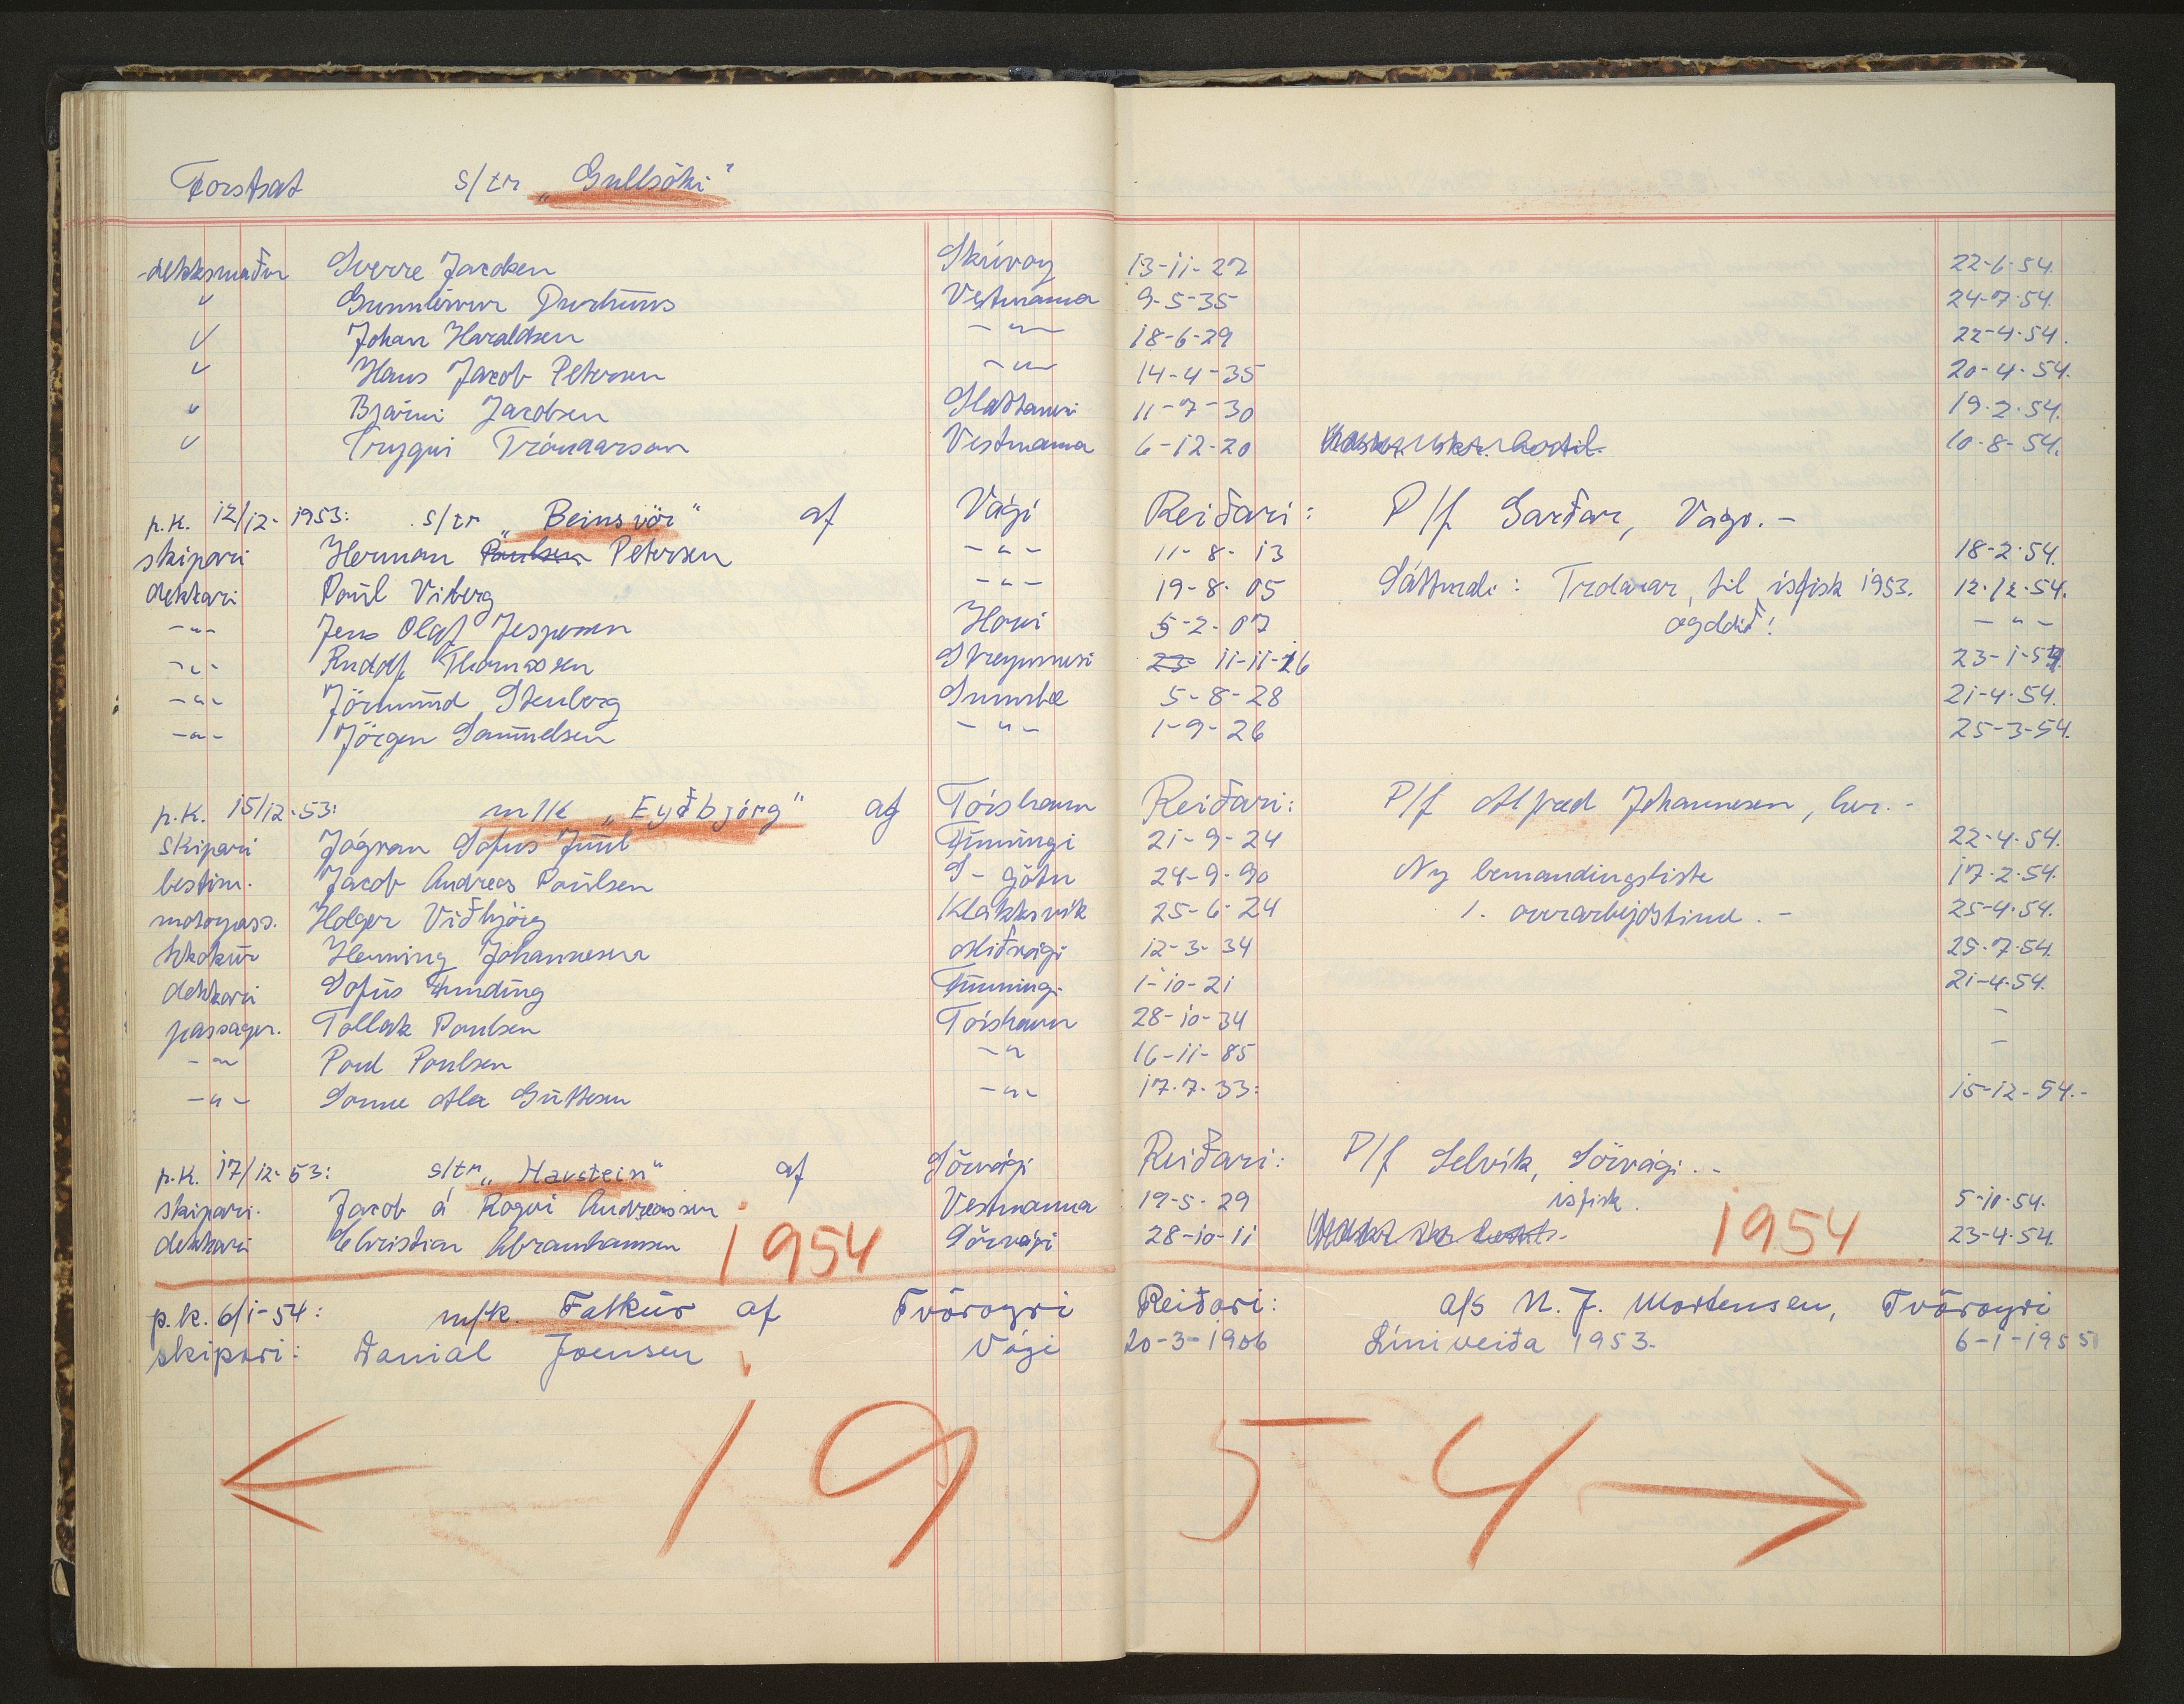 Forstsat s/tr „Gullsóki"
dekksmaður Sverre Jacobsen Skúvoy 13-11-27 22-6-54.
" Gunnleivur Durhuus Vestmanna 9-5-35 24-7-54.
" Johan Haraldsen -"- 18-6-29 22-4-54.
" Hans Jacob Petersen -"- 14-4-35 20-4-54.
" Bjarni Jacobsen Slættanesi 11-7-30 19-2-54.
" Tryggvi Tróndarson Vestmanna 6-12-20 10-8-54.
p.k. 12/12-1953: s/tr „Beinisvör" af Vági Reiðari: P/f Garðar, Vágo.-
skipari Herman Poulsen Petersen -"- 11-8-13 18-2-54.
dekkari Poul Viberg -"- 19-8-05 Sáttmáli: Trolarar, til ísfisk 1953. 12-12-54.
-"- Jens Olaf Jespersen Hovi 5-2-07 ógoldið! -"-
-"- Rudolf Thomassen Streymnesi 23 11-11-26 23-1-54
-"- Jörmund Stenberg Sumbø 5-8-28 21-4-54.
-"- Jörgen Samuelsen -"- 1-9-26 25-3-54.
p.k. 15/12-53: m/k „Eyðbjørg" af Tórshavn Reiðari: P/f Alfred Johannesen, her.-
skipari Jógvan Sofus Juul Funningi 21-9-24 22-4-54.
bestm. Jacob Andreas Poulsen S-gøtu 24-9-90 Ny bemandingsliste 17-2-54.
motorpass. Holger Viðbjørg Klakksvík 25-6-24 1. overarbejdstime.- 25-4-54.
kokkur Henning Johannesen Miðvági 12-3-34 25-7-54.
dekkari Sofus Funding Funningi 1-10-21 21-4-54.
passager. Tollak Poulsen Tórshavn 28-10-34 -
-"- Poul Poulsen -"- 16-11-85 -
-"- Sonne Guttesen -"- 17-7-33: 15-12-54.-
p.k. 17/12-53: s/tr „Havstein" af Sörvági Reiðari: P/f Selvík, Sörvági.-
skipari. Jacob á Rógvi Andreassen Vestmanna 19-5-29 ísfisk. 5-10-54.
dekkari Christian Abrahamsen 1954 Sörvági 28-10-11 1954 23-4-54.
p.k. 6/1-54: m/k. Falkur af Tvöroyri Reiðari: a/s N. J. Mortensen, Tvöroyri
skipari: Danial Joensen Vági 20-3-1906 Líniveiða 1953. 6-1-1955
← 19 54 →